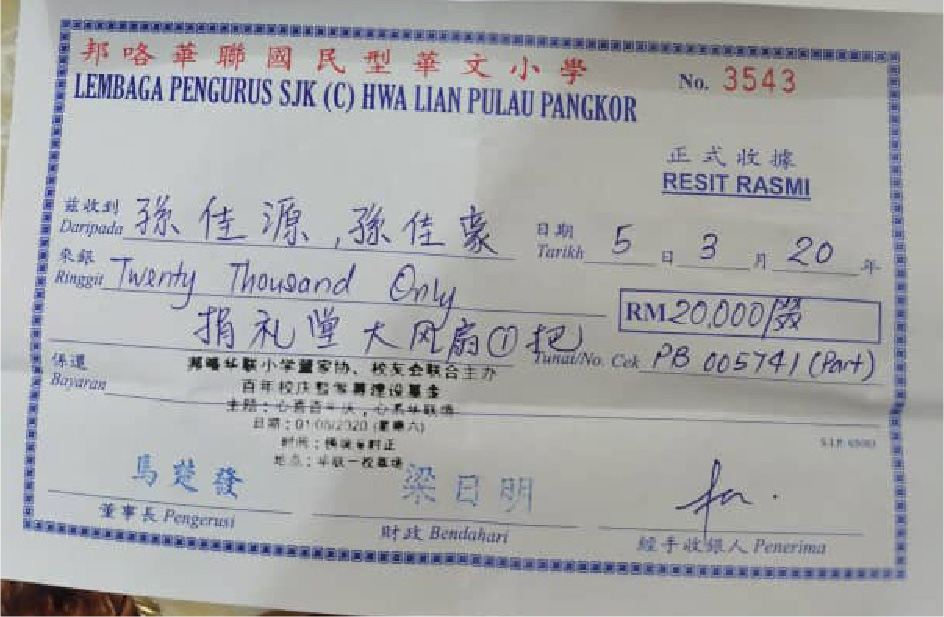 邦咯華聯國民型華文小學
No. 3543
LEMBAGA PENGURUS SJK (C) HWA LIAN PULAU PANGKOR
正式收據
RESIT RASMI
茲收到
Daripada 孫佳源,孫佳豪
日期
Tarikh 5 日 3 月 20 年
來銀
Ringgit Twenty Thousand Only
RM 20,000/
捐礼堂大风扇①把
Tunai/No. Cek PB 005741 (Part)
係還
Bayaran
邦咯华联小学董家协、校友会联合主办
百年校庆暨筹募建设基金
日期:01/08/2020 (星期六)
馬楚發
梁日明
董事長 Pengerusi
財政 Bendahari
經手收銀人 Penerima